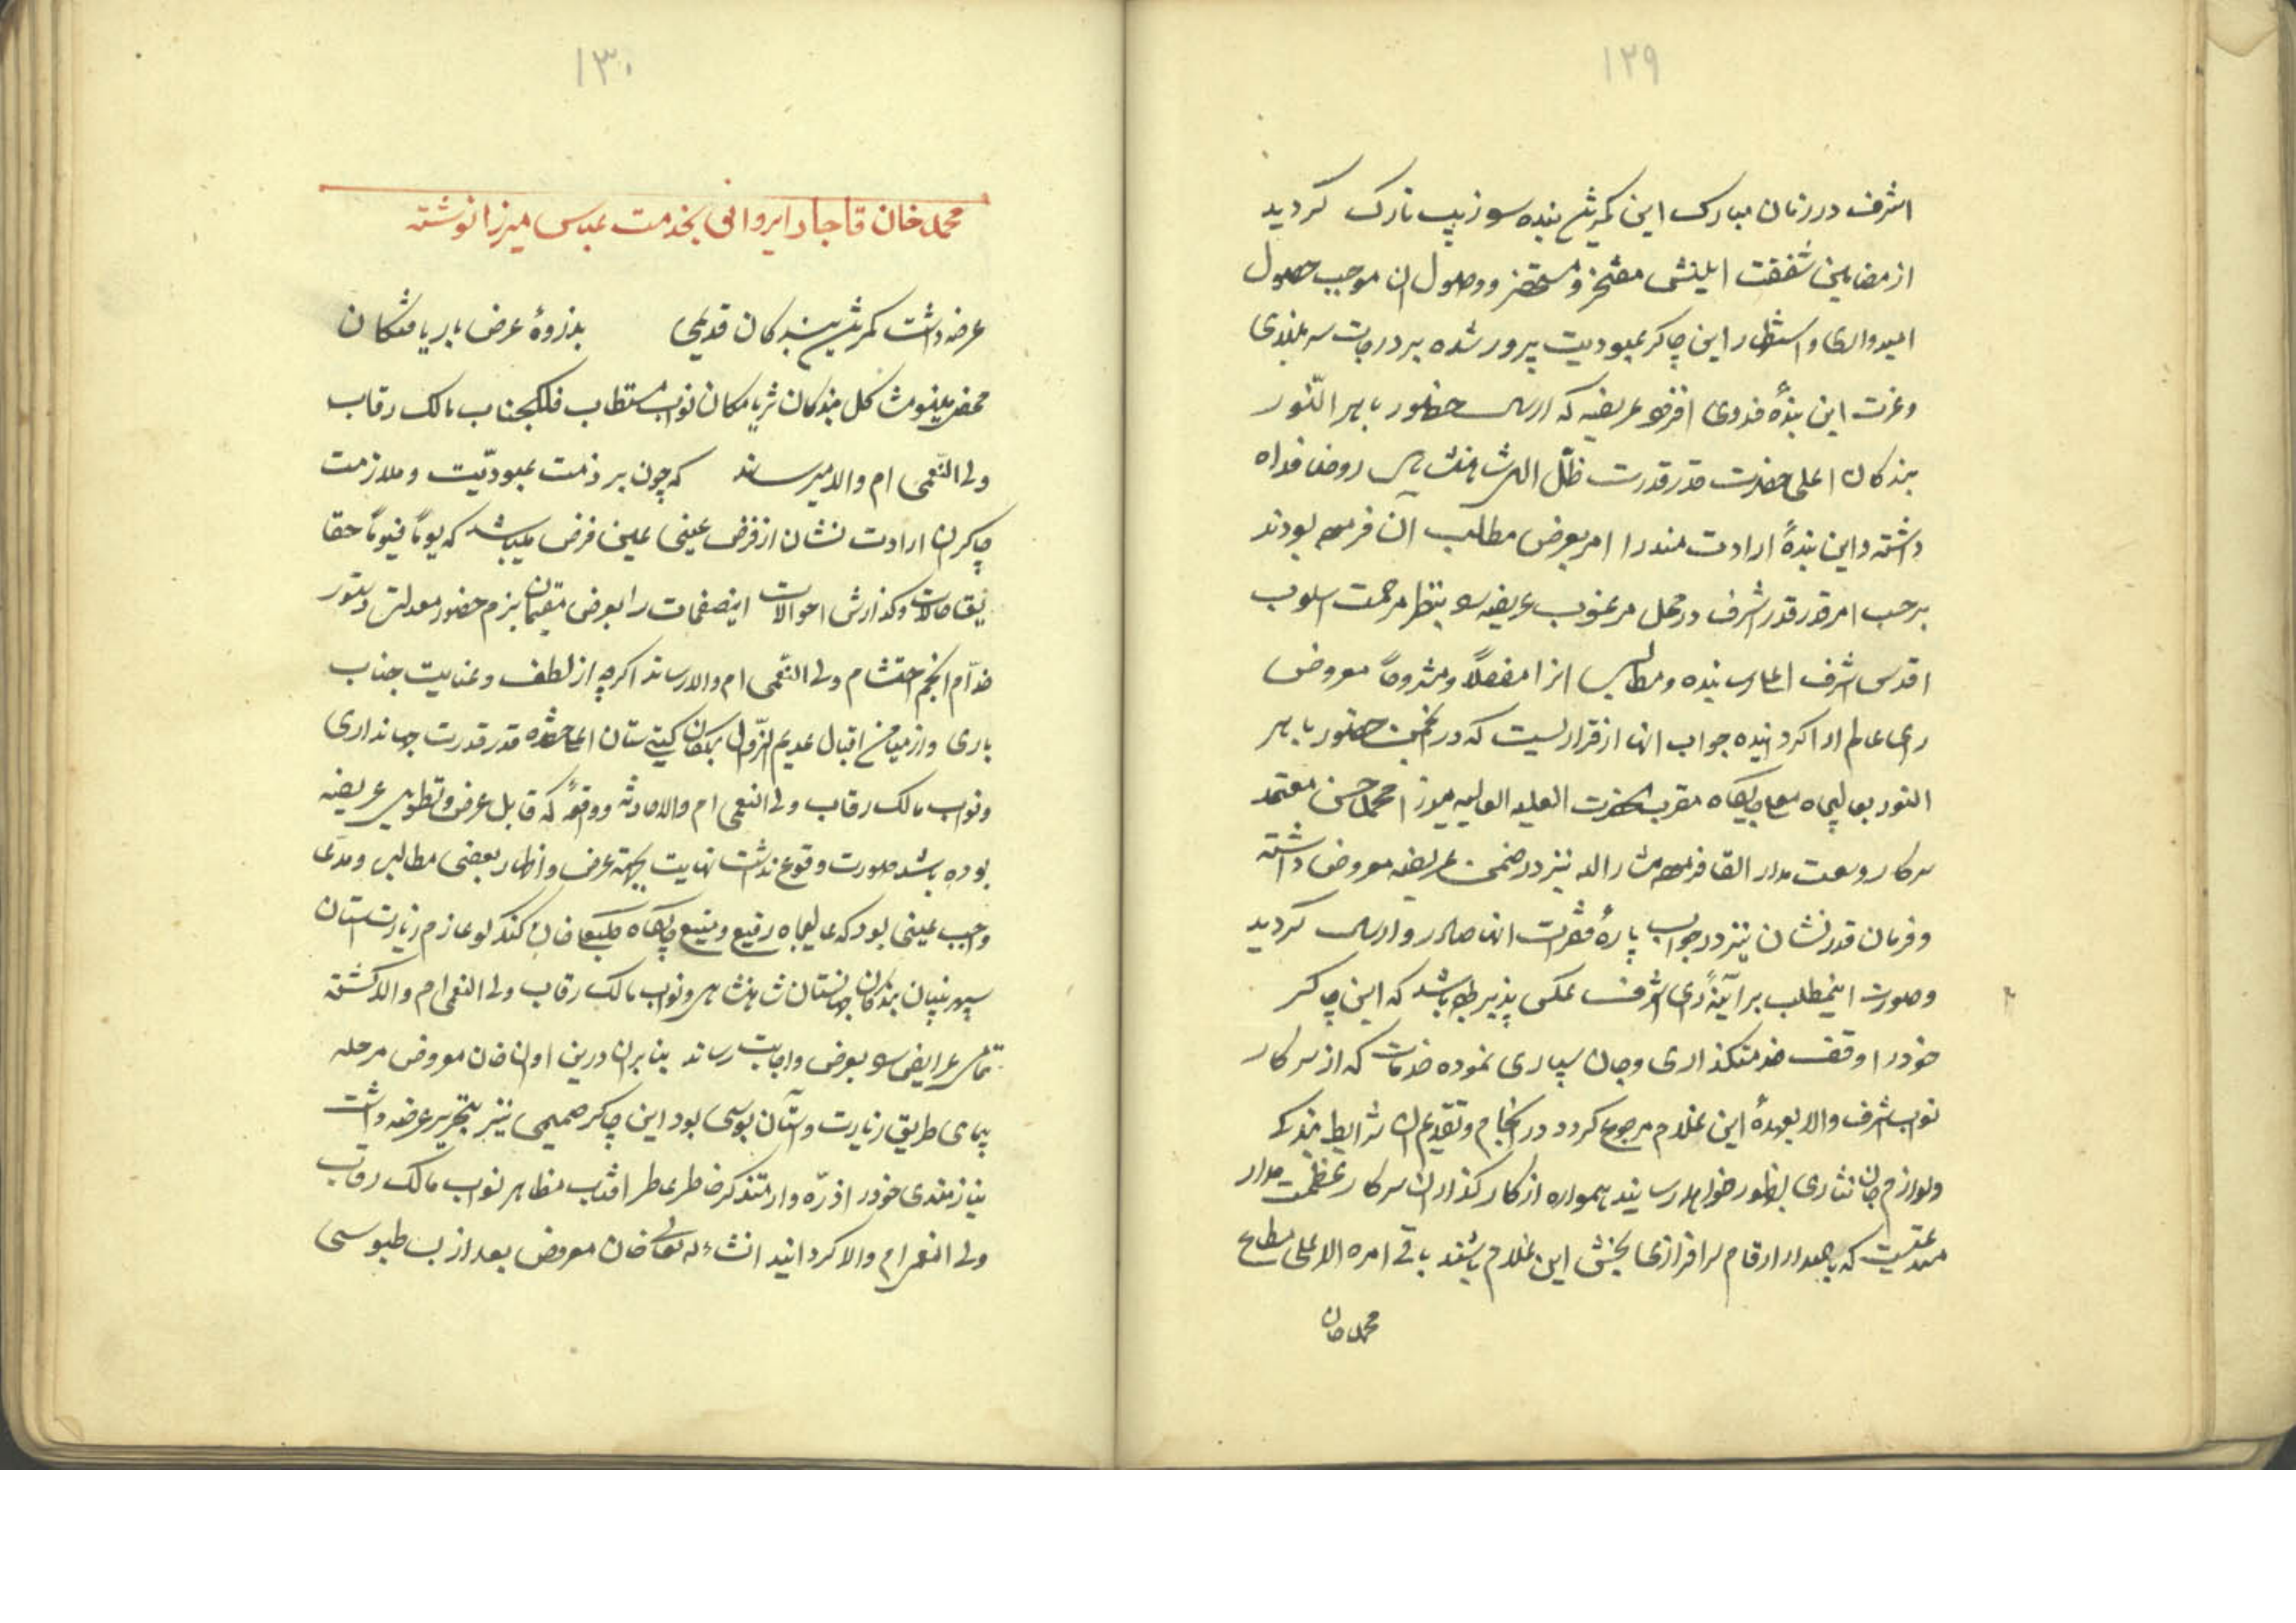 ۱۲۹
اشرف در زمان مبارک این کمرین بنده سو زیب تارک گردید
از مضامین شفقت مفتخر و مستحضر و وصول ان موجب حصول
امیدواری و استظهار این چاکر عبودیت پرور شده بر درجات سربلندی
وعزت این بندهٔ فدوی افزود عریضه که ارسال حضور باهر النّور
بندکان اعلی حضرت قدر قدرت ظلّ اللهی شاهنشاهی روحنا فداه
داشته و این بندهٔ ارادت مند را امر بعرض مطالب آن فرموده بودند
برحسب امر قدر قدر اشرف در محل مرغوب عریضه سو بنظر مرحمت اسلوب
اقدس اشرف اعلی رسانیده ومطالب انرا مفصلاً ومشروحاً معروض
رای عالم ارا کردانیده جواب انها از قراریست که در انجمن حضور باهر
النور بعالیجاه معلی جایکاه مقرب الحضرت العلیه العالیه میرزا محمد حسن معتمد
سرکار وسعت مدار القا فرموده مشار الیه نیز در ضمن عریضه معروض داشته
وفرمان قدر نشان نیز در جواب پارهٔ فقرات انها صادر و ارسال کردید
وصورت اینمطلب بر آینهٔ رای اشرف عکس پذیر باشد که این چاکر
خود را وقف خدمتکذاری وجان سپاری نموده خدمات که از سرکار
نواب اشرف والا بعهدهٔ این غلام مرجوع کردد در انجام وتقدیم ان شرایط بندکی
ولوازم جان نثاری بظهور خواهد رسانید همواره از کار کذاران سرکار عظمت مدار
مستدعیست که باصدار ارقام سرافرازی بخش این غلام باشند باقی امره الاعلی مطاع
محمدخان
۱۳۰
محمد خان قاجار ایروانی بخدمت عباس میرزا نوشته
عرضه داشت کمرین بندکان قدیمی بذروهٔ عرض باریافتکان
محضر مینو مشاکل بندکان ثریا مکان نواب مستطاب فلکجناب مالک رقاب
ولی النّعمی ام والا میرساند که چون بر ذمت عبودیّت وملازمت
چاکران ارادت نشان از فرض عینی عین فرض میباشد که یوماً فیوماً حقا
یق حالات وکذارش احوالات اینصفحات را بعرض مقیمان بزم حضور معدلت دستور
خدّام انجم احتشام ولی النّعمی ام والا رساند اکرچه از لطف وعنایت جناب
باری واز میامن اقبال عدیم الزّوال بندکان کیتی ستان اعلیحضرت قدر قدرت جهانداری
ونواب مالک رقاب ولی النعمی ام والا حادثه ووقوعهٔ که قابل عرض وتطویل عریضه
بوده باشد صورت وقوع نداشت نهایت بجهة عرض واظهار بعضی مطالب ومدّعا
واجب عینی بود که عالیجاه رفیع ومنیع جایکاه عازم زیارت استان
سپهر بنیان بندکان جهانستان شاهنشاهی ونواب مالک رقاب ولی النعمی ام والا کشته
تمامی عرایض سو بعرض واجابت رساند بنابران درین اوان خان معروض مرحله
پیمای طریق زیارت واستان بوسی بود این چاکر صمیمی نیز بتحریر عرضه داشت
نیازمندی خود را ذرّه وار متذکر خاطر عاطر افتاب مظاهر نواب مالک رقاب
ولی النعم ام والا کردانید انشاءله تعالی خان معروض بعد از بساط بوسی